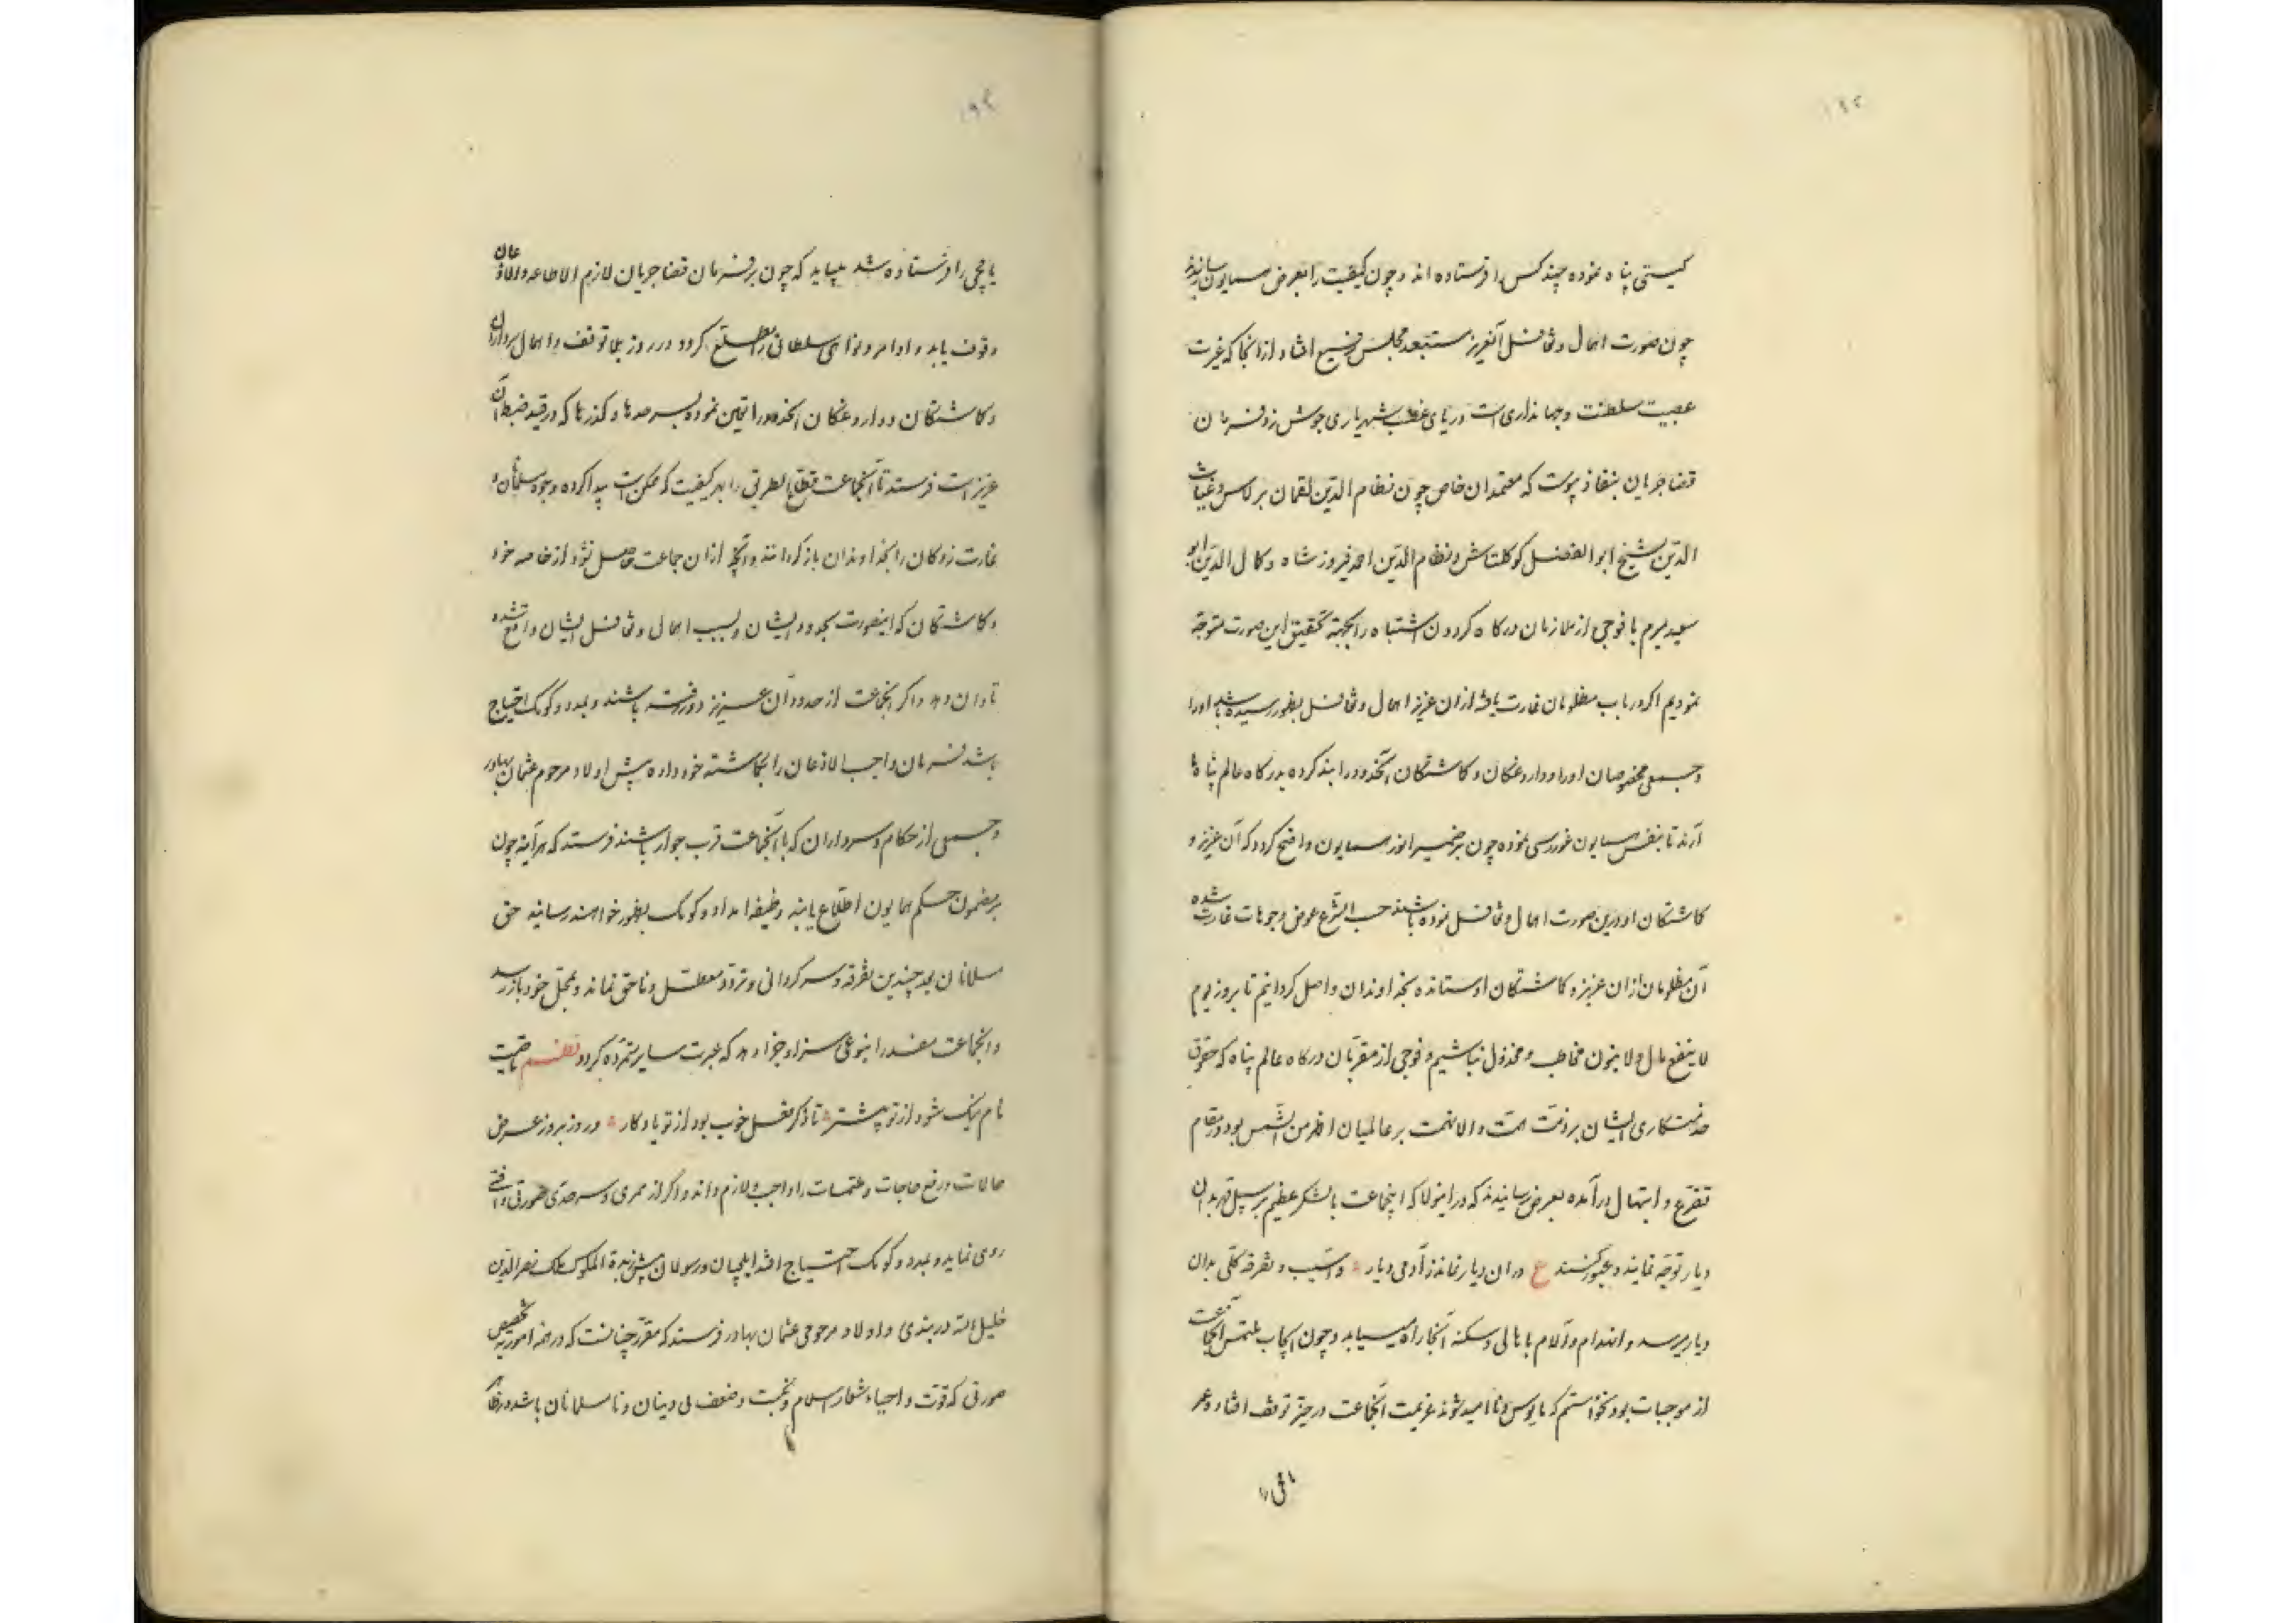 ۱۹۲
کیستی پناه نموده چند کس را فرستاده اند و چون کیفیت را بعرض همایون رسانیدند
چون صورت اهمال و تغافل آنعزیز مستبعد مجلس رفیع افتاد از انجا که غیرت
عصبیت سلطنت و جهانداری است دریای غضب شهریاری جوش زد فرمان
قضا جریان بنفاذ پیوست که معتمدان خاص چون نظام الدین لقمان برلاس و غیاث
الدین شیخ ابوالفضل کوکلتاش و نظام الدین احمد فیروز شاه و کمال الدین ابو
سعید میرم با فوجی از ملازمان درکاه کردون اشتباه را بجهته تحقیق این صورت متوجه
نمودیم اکر در باب مظلومان غارت یافته از ان عزیز اهمال و تغافل بظهور رسیده باشد او را
و جمعی مخصوصان او را و داروغکان و کماشتکان آنحدود را بند کرده بدرکاه عالم پناه ما
آرند تا بنفس همایون غوررسی نموده چون بر ضمیر انور همایون واضح کردد که آن عزیز و
کماشتکان او درین صورت اهمال و تغافل نموده باشند حسب الشرع عوض وجوهات غارت شده
آن مظلومان از ان عزیز و کماشتکان او ستانده بخداوندان واصل کردانیم تا بروز یوم
لا ینفع مال و لا بنون مخاطب و مخذول نباشیم و فوجی از مقربان درکاه عالم پناه که حقوق
خدمتکاری ایشان بر ذمت همت والا نهمت بر عالمیان اظهر من الشمس بود در مقام
تضرع و ابتهال درآمده بعرض رسانیدند که در اینولا که اینجماعت با لشکر عظیم بر سبیل قهر بدان
دیار توجه نمایند و عبور کنند ع در ان دیار نماند ز آدمی دیار و آسیب و تفرقه کلی بدان
دیار میرسد و انهدام و آلام باهالی و سکنه آنجا راه مییابد و چون ایجاب ملتمس آنجماعت
از موجبات بود نخواستم که مایوس و ناامید شوند عزیمت آنجماعت در حیز توقف افتاد و عمر
باقی
۱۹۳
یامچی را فرستاده شد میباید که چون بر فرمان قضا جریان لازم الاطاعه و الاذعان
وقوف یابد و اوامر و نواهی سلطانی را مطلع کردد در روز بلا توقف و اهمال سرداران
و کماشتکان و داروغکان آنحدود را تعین نموده بسرحدها و کذرها که در قید ضبط آن
عزیز است فرستد تا آنجماعت قطاع الطریق را بهر کیفیت که ممکن است پیدا کرده وجوه مسلمانان و
غارت زدکان را بخداوندان باز کردانند و آنچه از ان جماعت حاصل نشود از خاصه خود
و کماشتکان که اینصورت بحدود ایشان و بسبب اهمال و تغافل ایشان واقع شده
تاوان دهد و اکر آنجماعت از حدود آن عزیز دور رفته باشند و بمدد و کومک احتیاج
باشد فرمان واجب الاذعان را بکماشته خود داده پیش اولاد مرحوم عثمان بهادر
و جمعی از حکام و سرداران که با آنجماعت قرب جوار باشند فرستد که هرآینه چون
بر مضمون حکم همایون اطلاع یابند وظیفه امداد و کومک بظهور خواهند رسانید حق
مسلمانان بعد چندین تفرقه و سرکردانی و تردد معطل و ناحق نماند و بمحل خود باز رسد
و آنجماعت مفسد را بنوعی سزا و جزا دهد که عبرت سایر متمرده کردد نظم تا صیت
نام نیک شود از تو پیشتر تا ذکر فعل خوب بود از تو یادکار و روز بروز عرض
حالات و رفع حاجات و ملتمسات را واجب و لازم داند و اکر از ممری و سرحدی صورتی واقعی
روی نماید و بمدد و کومک احتیاج افتد ایلچیان و رسولان پیش زبدة الملوک ملک نصرالدین
خلیل الله دربندی و اولاد مرحومی عثمان بهادر فرستد که مقرر چنانست که در همه امور بتخصیص
صورتی که قوت و احیاء شعار اسلام و نکبت و ضعف بی دینان و نامسلمانان باشد